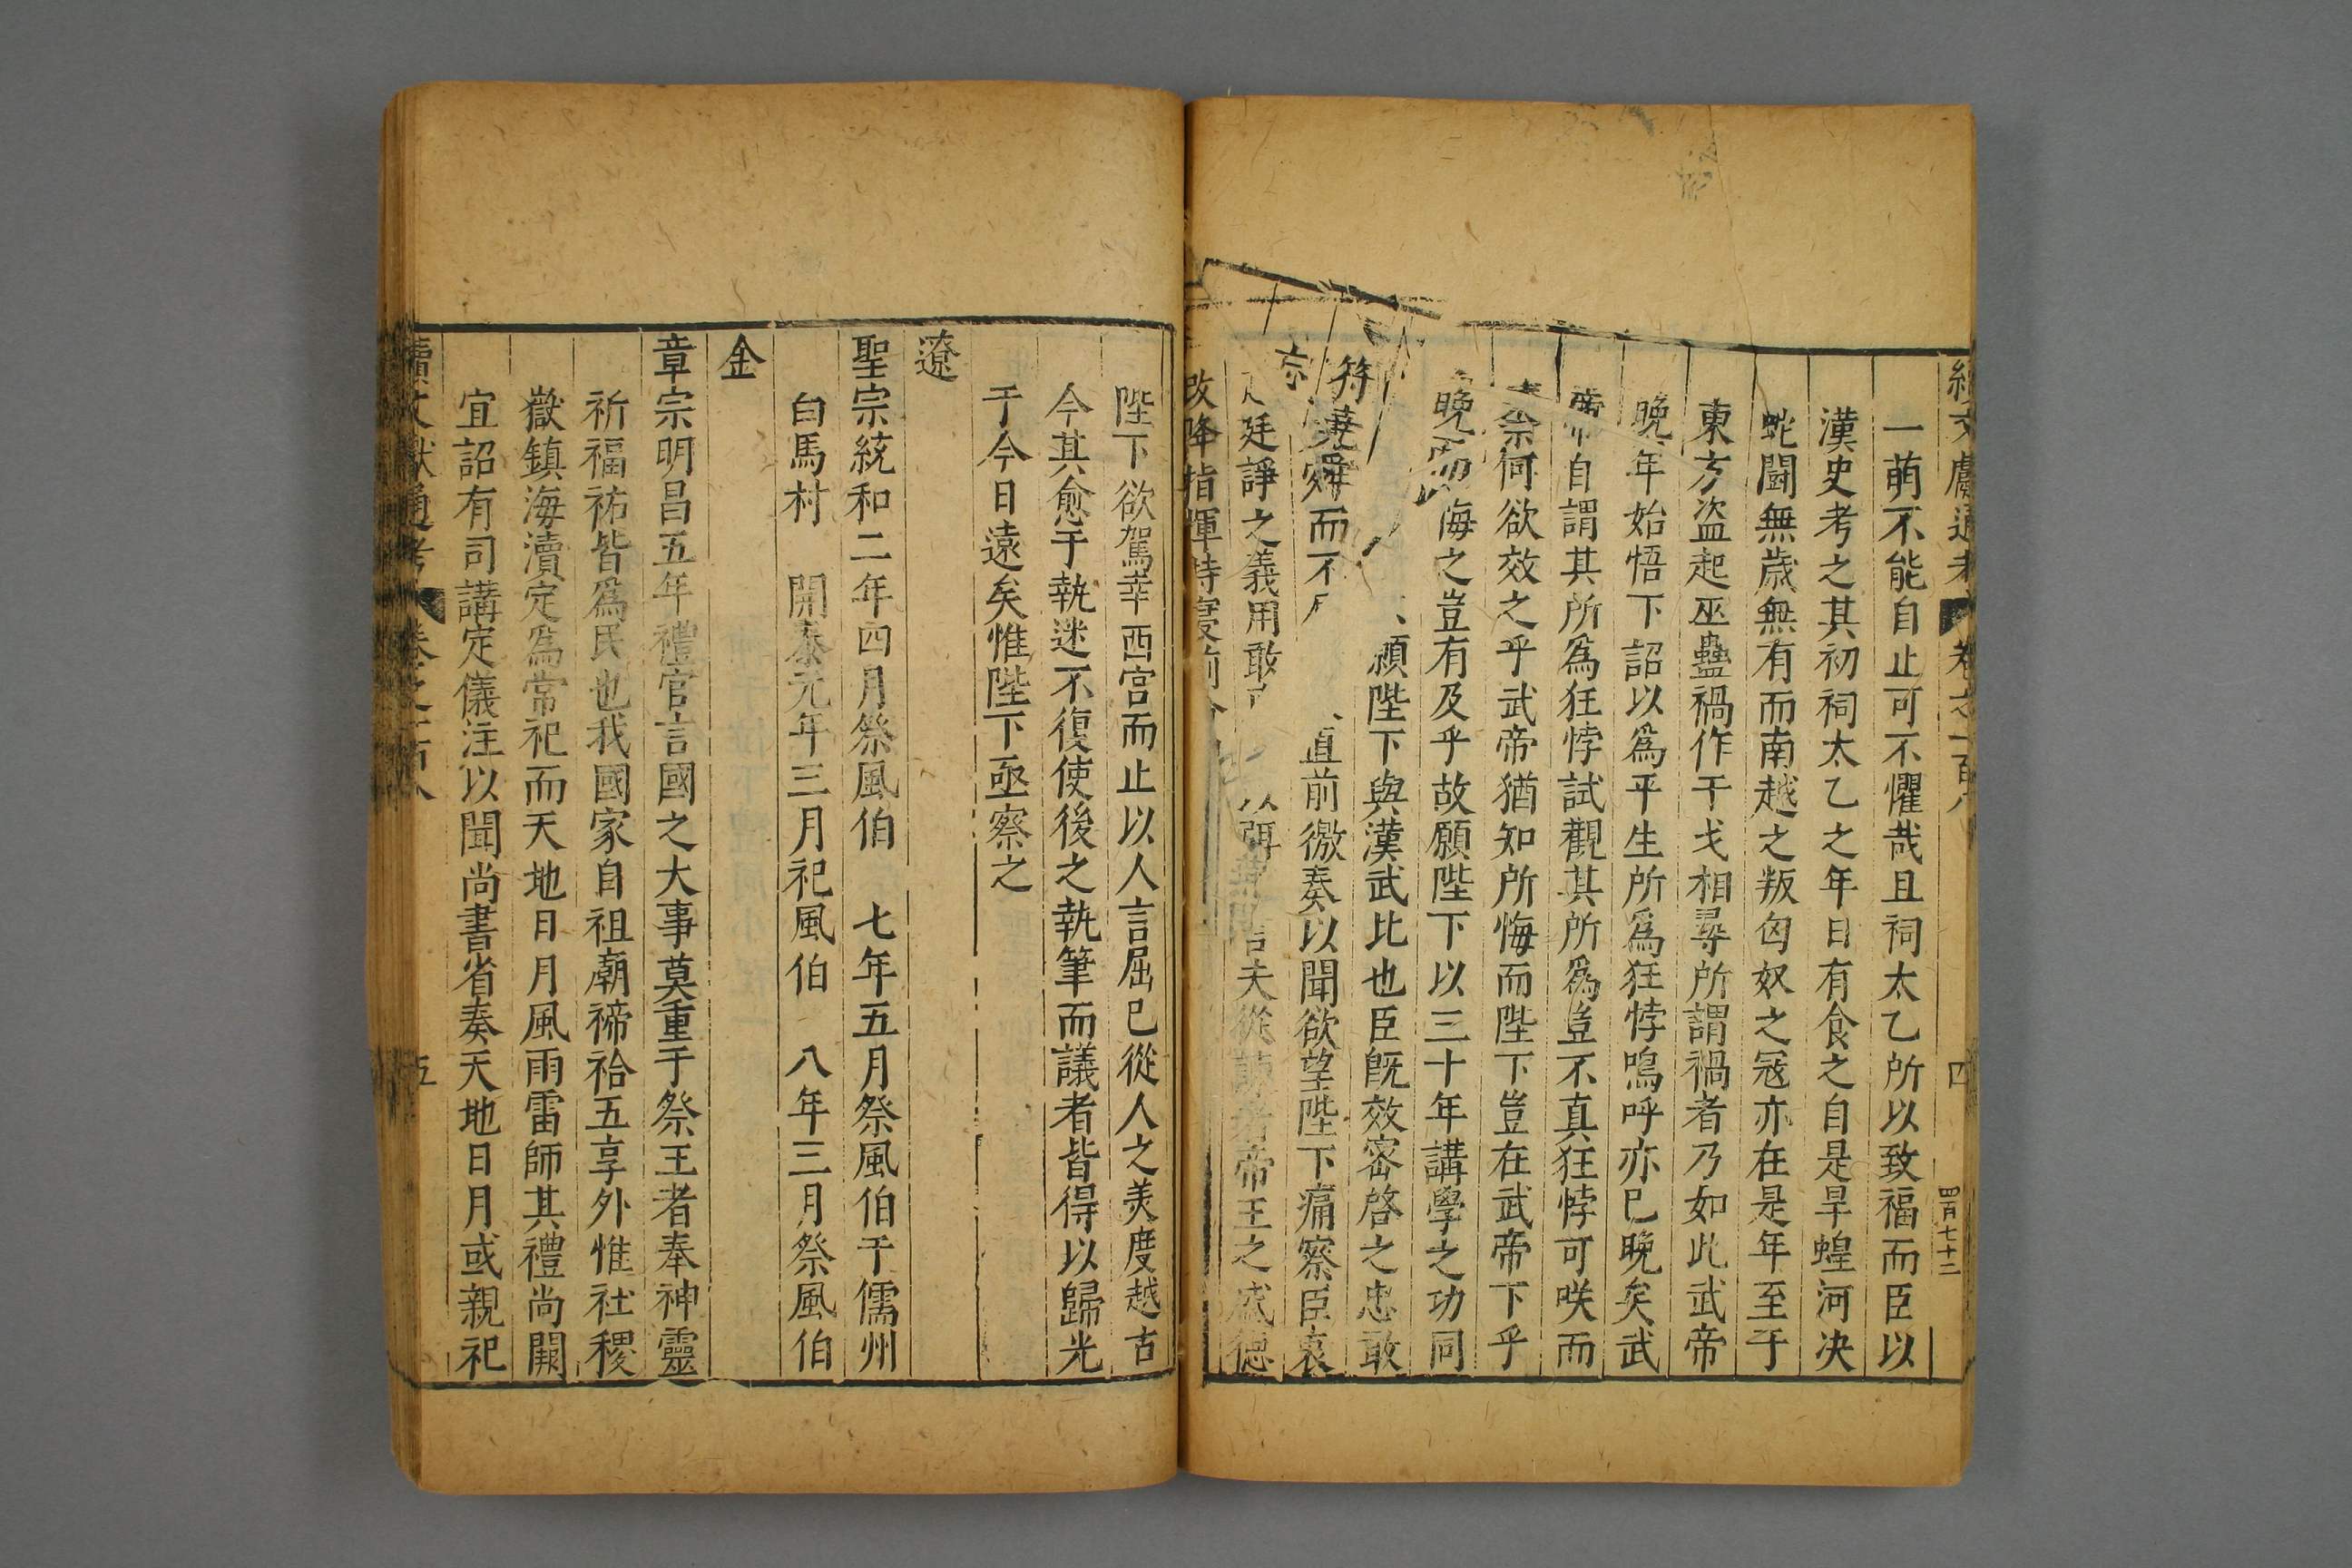 續文獻通考 卷之一百八 四 四百七十二
一萌不能自止可不懼哉且祠太乙所以致福而臣以
漢史考之其初祠太乙之年日有食之自是旱蝗河决
蛇闘無歳無有而南越之叛匈奴之冦亦在是年至于
東方盗起巫蠱禍作干戈相尋所謂禍者乃如此武帝
晚年始悟下詔以為平生所爲狂悖嗚呼亦已晚矣武
帝自謂其所爲狂悖試觀其所爲豈不真狂悖可咲而
何欲效之乎武帝猶知所悔而陛下豈在武帝下乎
晚而悔之豈有及乎故願陛下以三十年講學之功同
符 願陛下與漢武比也臣旣效密啓之忠敢
堯舜而不 直前徼奏以聞欲望陛下痛察臣哀
廷諍之義用敢 夫從諫者帝王之盛德
改降指揮特寢前
陛下欲駕幸西宫而止以人言屈已從人之美度越古
今其愈于執迷不復使後之執筆而議者皆得以歸光
于今日遠矣惟陛下亟察之
遼
聖宗統和二年四月祭風伯 七年五月祭風伯于儒州
白馬村 開泰元年三月祀風伯 八年三月祭風伯
金
章宗明昌五年禮官言國之大事莫重于祭王者奉神靈
祈福祐皆爲民也我國家自祖廟禘祫五享外惟社稷
嶽鎮海瀆定爲常祀而天地日月風雨雷師其禮尚闕
宜詔有司講定儀注以聞尚書省奏天地日月或親祀
續文獻通考 卷之一百八 五